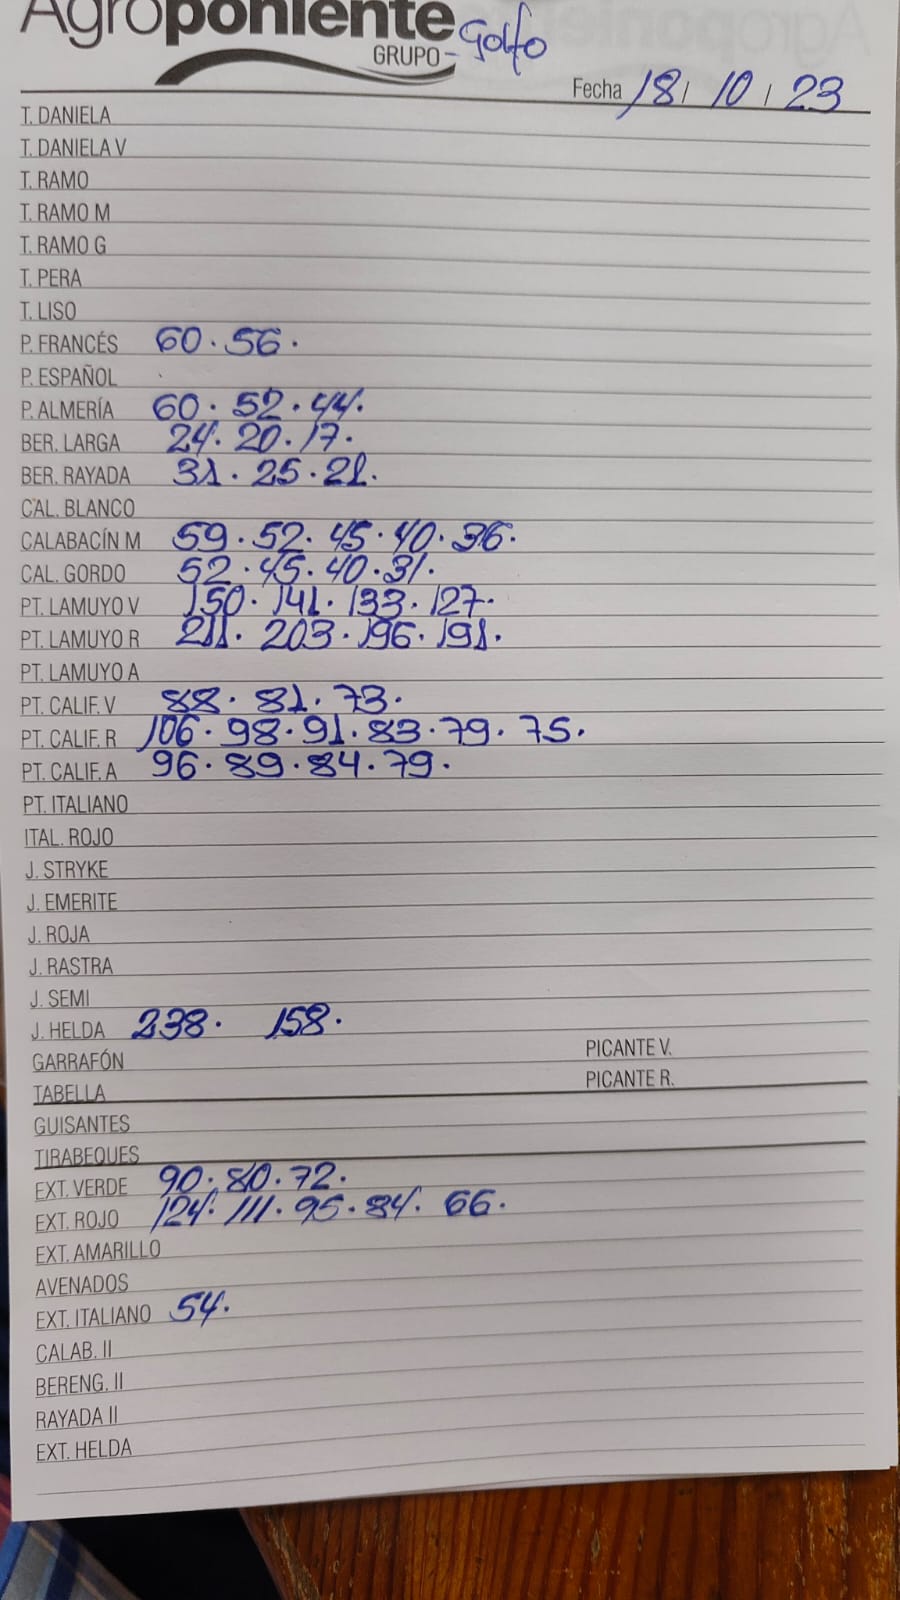 Agroponiente
GRUPO - Golfo
Fecha 18 / 10 / 23
T. DANIELA
T. DANIELA V
T. RAMO
T. RAMO M
T. RAMO G
T. PERA
T. LISO
P. FRANCÉS 60. 56.
P. ESPAÑOL
P. ALMERÍA 60. 52. 44.
BER. LARGA 24. 20. 17.
BER. RAYADA 31. 25. 21.
CAL. BLANCO
CALABACÍN M 59. 52. 45. 40. 36.
CAL. GORDO 52. 45. 40. 31.
PT. LAMUYO V 150. 141. 133. 127.
PT. LAMUYO R 211. 203. 196. 191.
PT. LAMUYO A
PT. CALIF. V 88. 81. 73.
PT. CALIF. R 106. 98. 91. 83. 79. 75.
PT. CALIF. A 96. 89. 84. 79.
PT. ITALIANO
ITAL. ROJO
J. STRYKE
J. EMERITE
J. ROJA
J. RASTRA
J. SEMI
J. HELDA 238. 158.
GARRAFÓN PICANTE V.
TABELLA PICANTE R.
GUISANTES
TIRABEQUES
EXT. VERDE 90. 80. 72.
EXT. ROJO 124. 111. 95. 84. 66.
EXT. AMARILLO
AVENADOS
EXT. ITALIANO 54.
CALAB. II
BERENG. II
RAYADA II
EXT. HELDA